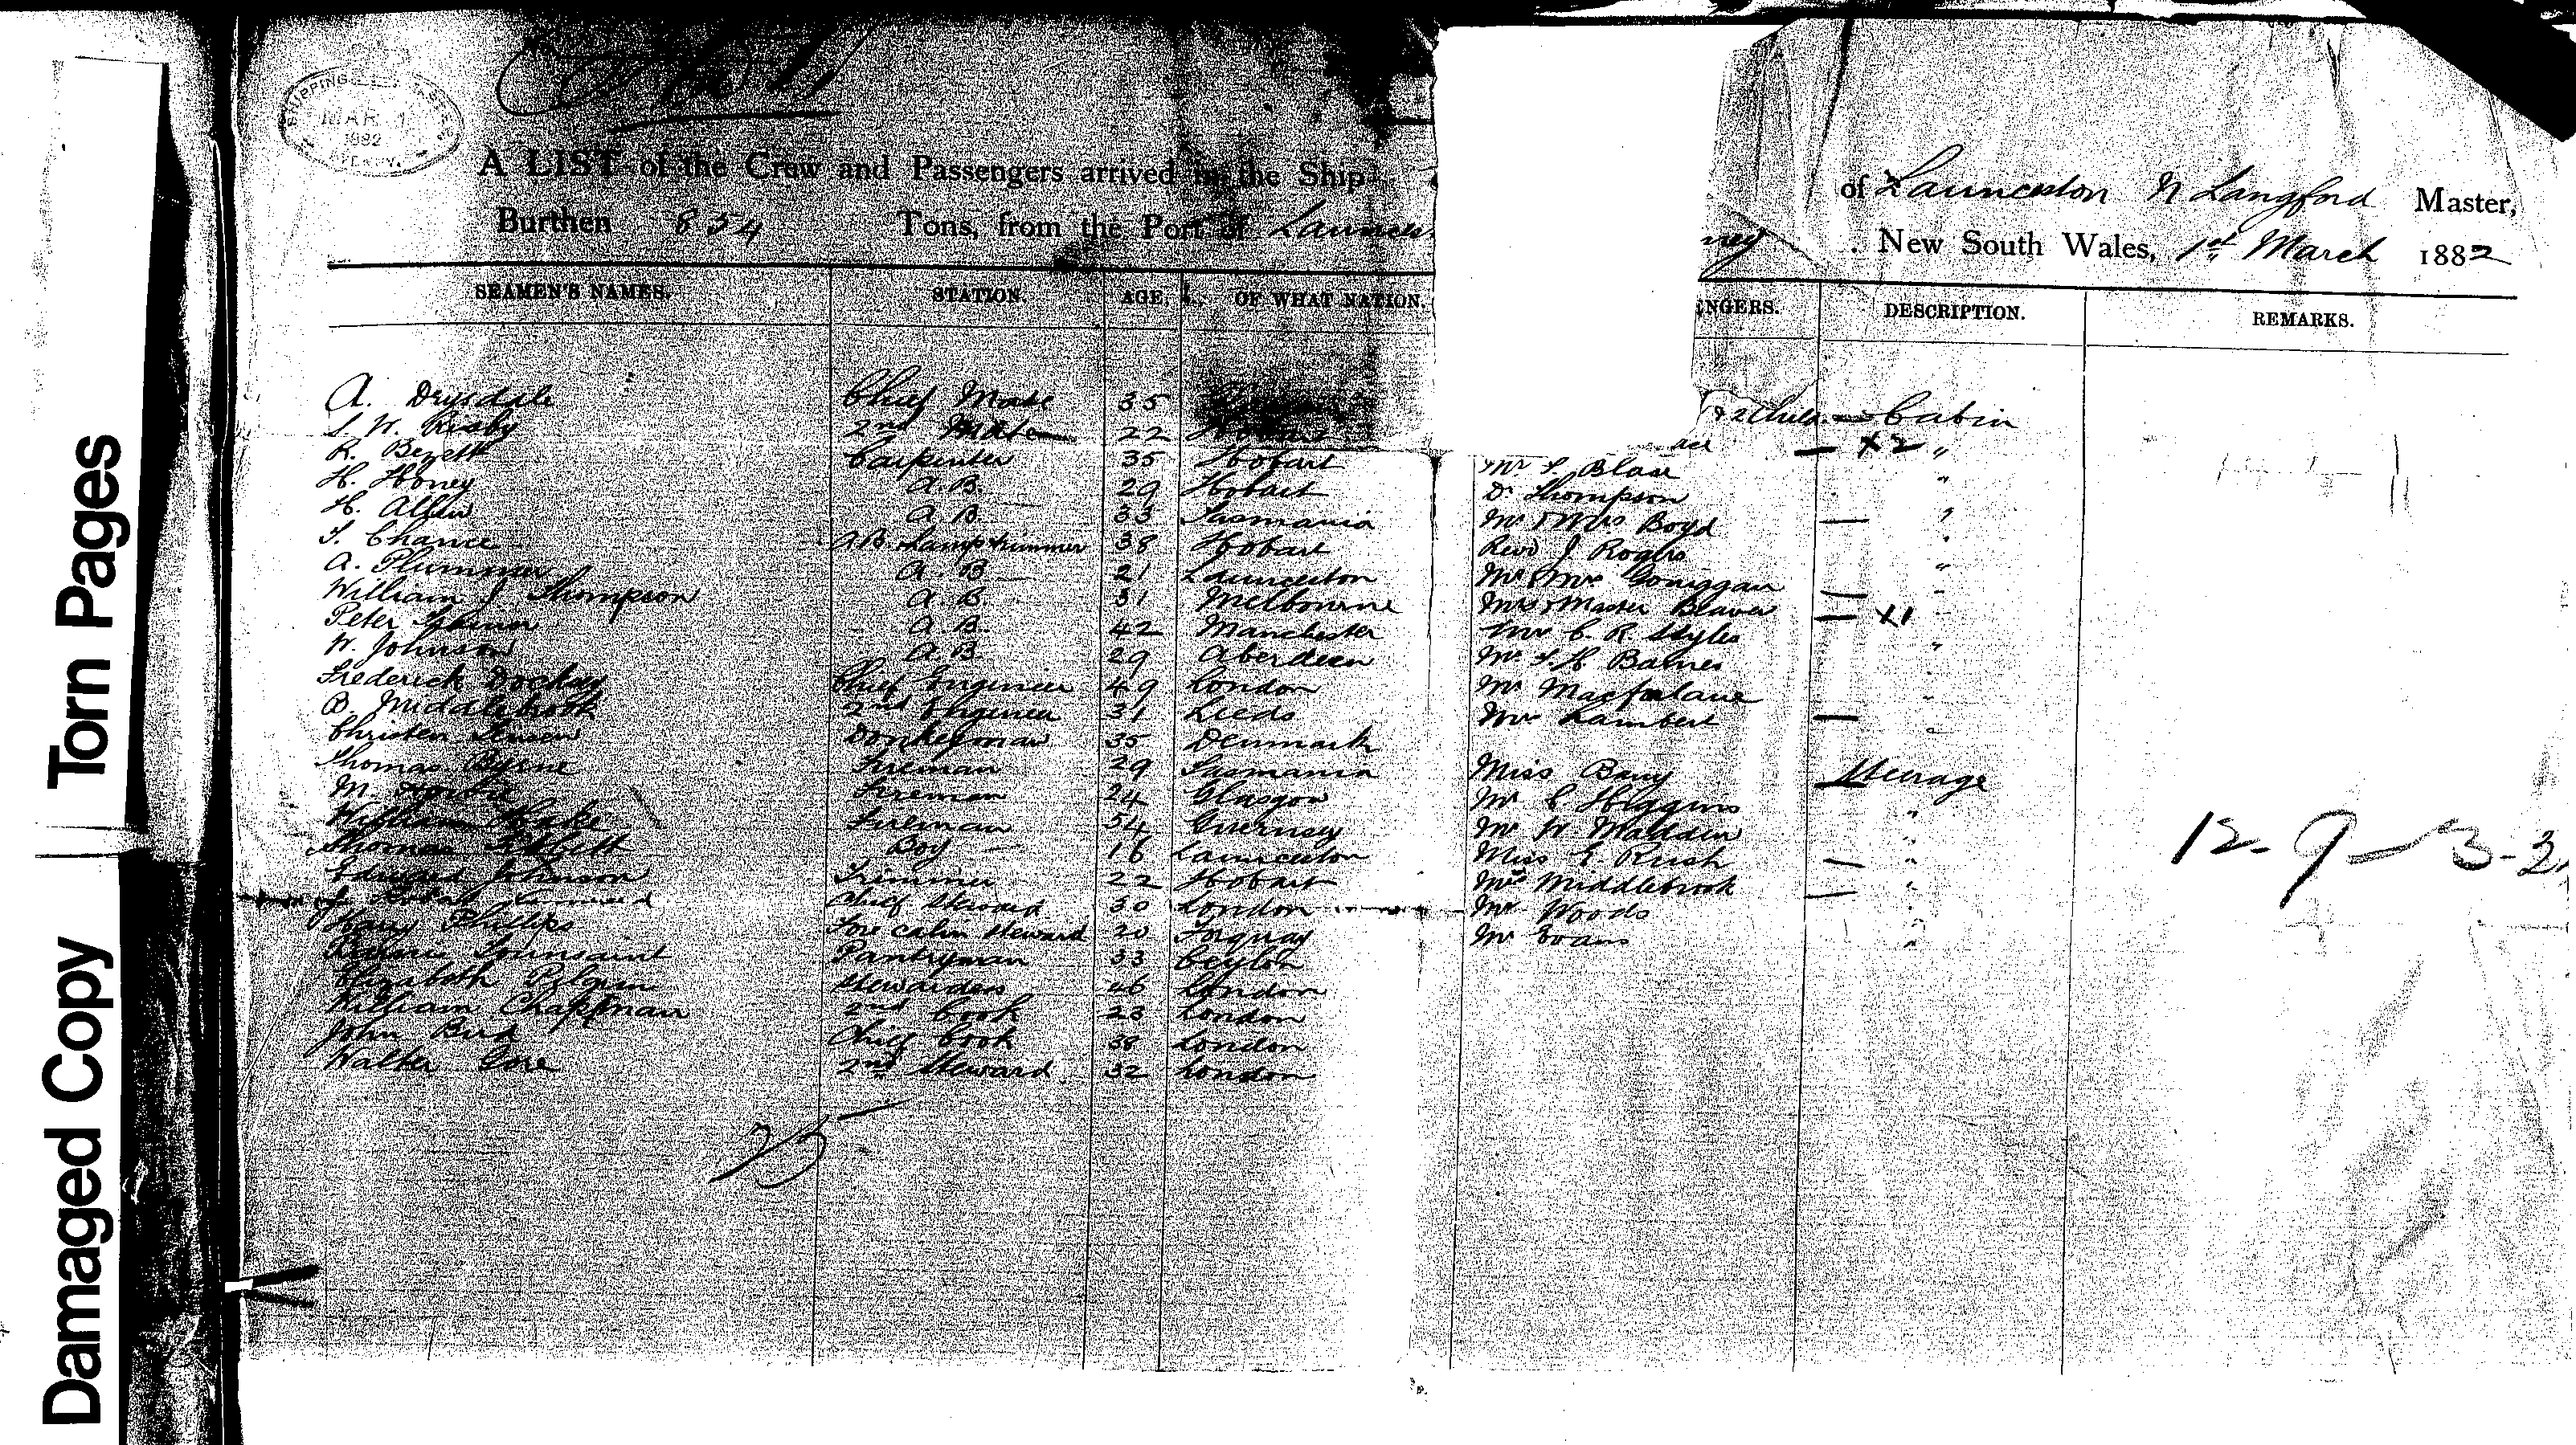 Torn Pages
Damaged Copy
SHIPPING MASTER'S
MAR 1
1882
SYDNEY.
A LIST of the Crew and Passengers arrived in the Ship of Launceston N Langford Master,
Burthen 854 Tons, from the Port of Launces ney New South Wales, 1st March 1882
SEAMEN'S NAMES. STATION. AGE. OF WHAT NATION. ENGERS. DESCRIPTION. REMARKS.
A. Drysdale Chief Mate 35 & 2 Child. — Cabin
S. W. Risby 2nd Mate 22 Hobart — X2 "
R. Bezett Carpenter 35 Hobart Mr S. Blair "
H. Honey A.B. 29 Hobart Dr Thompson "
H. Allen A.B. 33 Tasmania Mr & Mrs Boyd — "
T. Chance A.B. Lamptrimmer 38 Hobart Revd J. Rogers "
A. Plummer A.B. 21 Launceston Mr & Mrs —
William J Thompson A.B. 31 Melbourne Mrs & Master Beaver — X1
Peter A.B. 42 Manchester Mr C. R. Styles "
W. Johnson A.B. 29 Aberdeen Mr T. H. Barnes "
Frederick Chief Engineer 49 London Mr Macfarlane "
B. Middlebrook 2nd Engineer 31 Leeds Mr Lambert — "
Christen Jensen Donkeyman 35 Denmark
Thomas Byrne Fireman 29 Tasmania Miss Barry Steerage
M. Fireman 24 Glasgow Mr C Higgins "
William Hake Fireman 54 Guernsey Mr W. Madden "
Thomas Boy 16 Launceston Miss E Rush — "
Edward Johnson Trimmer 22 Hobart Mrs Middlebrook — "
Chief Steward 30 London Mr Woods "
Harry Phillips Fore cabin Steward 20 Torquay Mr Evans "
Tounsaint Pantryman 33 Ceylon
Elizabeth Pilgrim Stewardess 46 London
William Chapman 2nd Cook 23 London
John Bird Chief Cook 38 London
Walter Gore 2nd Steward 32 London
25
12-9-3-2